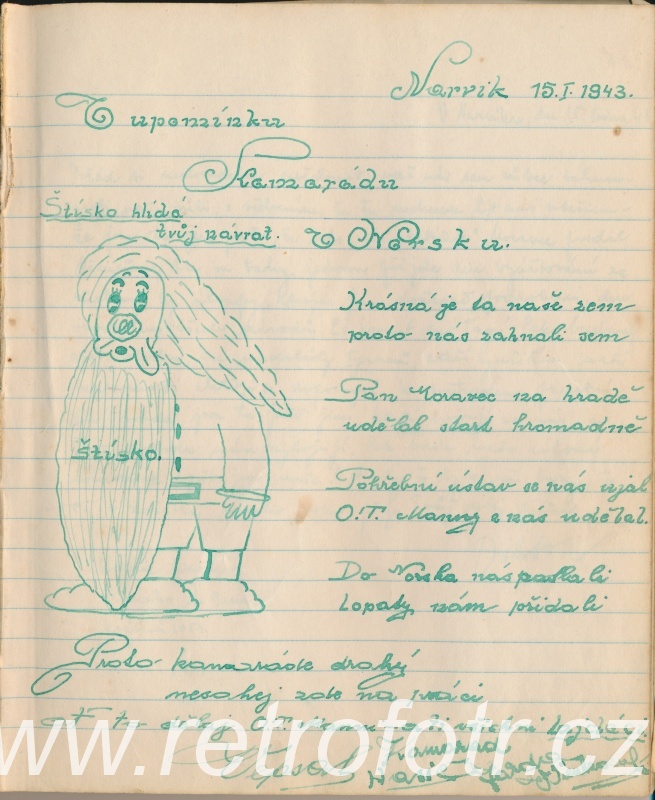 Narvik 15.I.1943.
V upomínku
Kamarádu
Štísko hlídá
tvůj návrat.
v Norsku.
Krásná je ta naše zem
proto nás zahnali sem
Pan Moravec na hradě
udělal start hromadně
Pohřební ústav se nás ujal
O.T. Manny z nás udělal.
Do Norska nás poslali
lopaty nám přidali
Štísko.
Proto kamaráde drahý
nesahej zde na práci
O.T.
Kamarád
www.retrofotr.cz